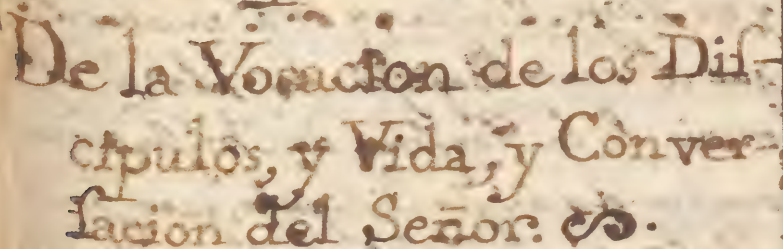 De la Vocacion de los Diſ-
cipulos, y Vida, y Conver-
ſacion del Señor.